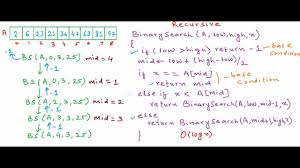 Recursive
A 2 6 13 21 36 47 63 81 97
0 1 2 3 4 5 6 7 8
-1
BS (A, 0, 8, 25) mid = 4
↓ ↑ -1
BS (A, 0, 3, 25) mid = 1
↓ ↑ -1
BS (A, 2, 3, 25) mid = 2
↓ ↑ -1
BS (A, 3, 3, 25) mid = 3
↓ ↑ -1
BS (A, 4, 3, 25)
BinarySearch (A, low, high, x)
{
if (low > high) return -1 base condition
mid = low + (high-low)/2
if x == A[mid]
return mid base condition
else if x < A[mid]
return BinarySearch(A, low, mid-1, x)
else
return BinarySearch(A, mid+1, high, x)
}
O(log n)